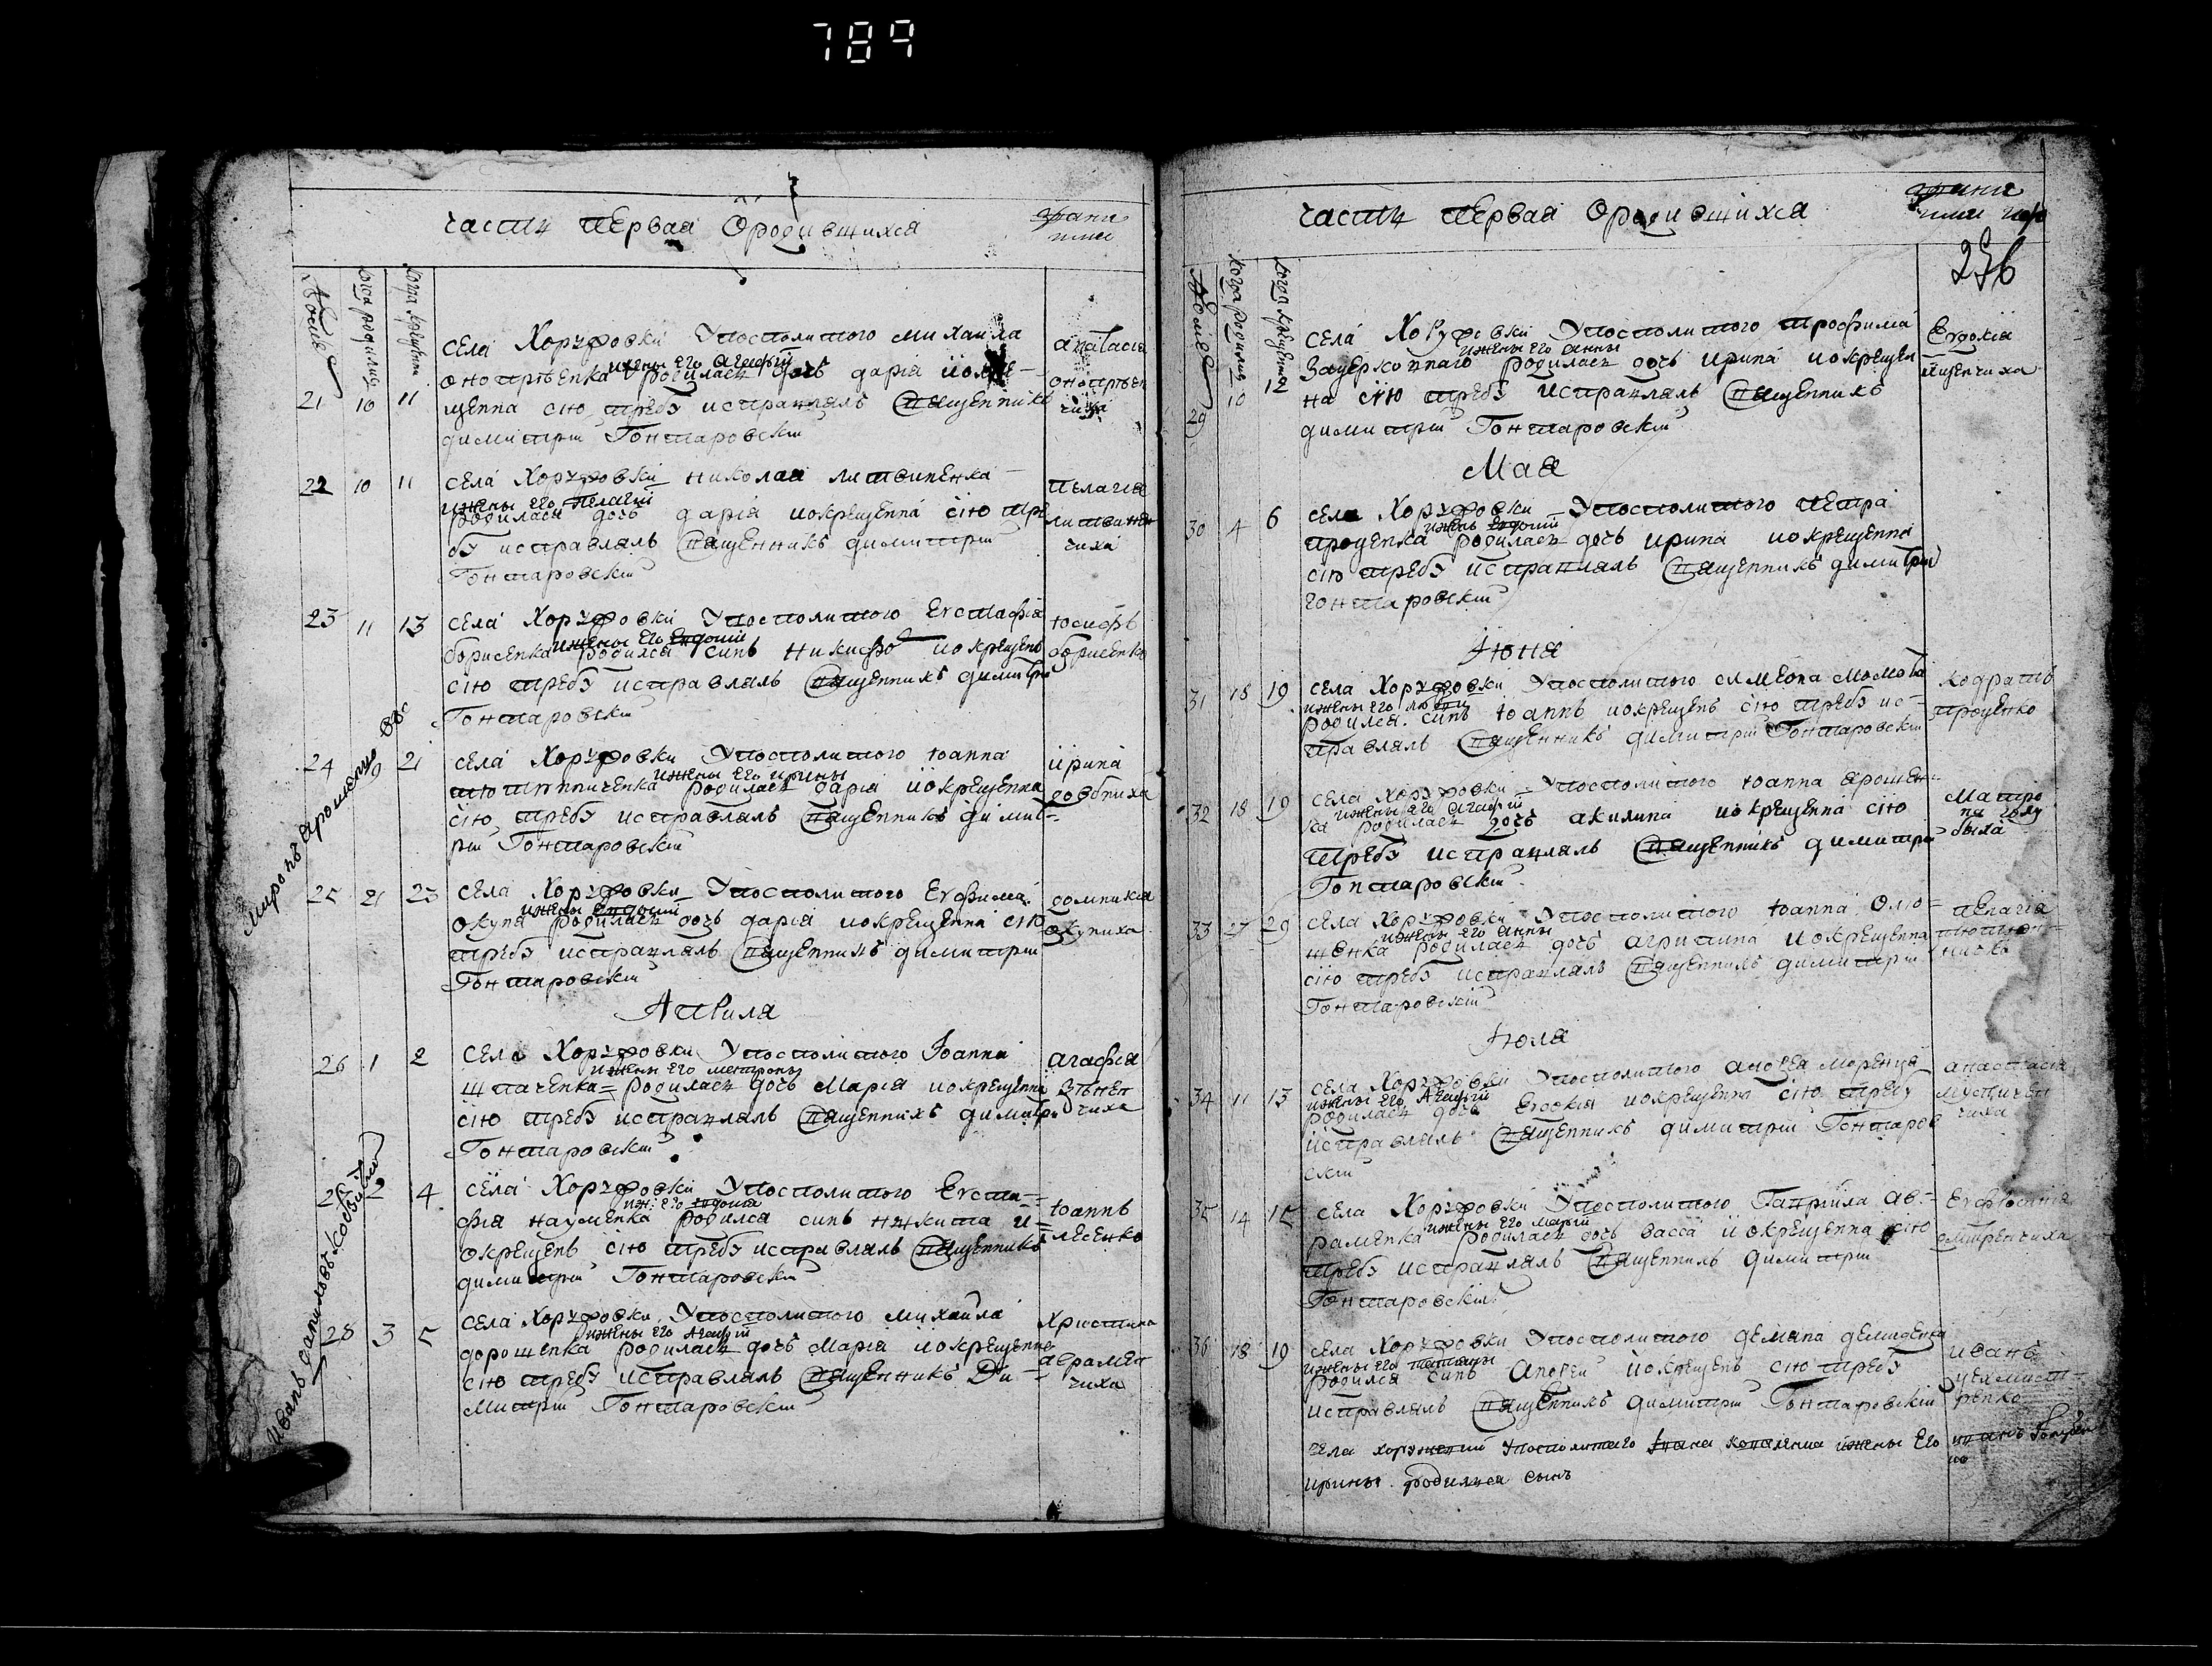 789
часть первая Ородившихся
когда родился
когда крещени
21 10 11
села Хоружовки Упосполитого михаила
ижены его Агафіи
оноприенка родилась дочь дарія иокре-
щенна сию требу исправлялъ Священникъ
димитрій Гонтаровскій
анатасія
оноприен
чиха
22 10 11
села Хоружовки николая литвиненка
ижены его Пелагіи
родилася дочь дарія иокрещенна сію тре
бу исправлялъ Священникъ димитрій
Гонтаровскій
пелагія
литвинен
чиха
23 11 13
села Хоружовки Упосполитого Евстафія
ижены его Евдокіи
борисенка родился синъ никифо иокрещенъ
сію требу исправлялъ Священникъ димитрій
Гонтаровскій
юсифъ
борисенко
24 19 21
села Хоружовки Упосполитого юанна
ижены его ирины
родилась дарія иокрещенна
сію требу исправлялъ Священникъ димит-
рій Гонтаровскій
ирина
вовбниха
25 21 23
села Хоружовки Упосполитого Евфима
ижены Евдокіи
окуня родилась дочь дарія иокрещенна сію
требу исправлялъ Священникъ димитрій
Гонтаровскій
домникія
окуниха
Априля
26 1 2
села Хоружовки Упосполитого Іоанна
ижены его метроны
шпаченка родилась дочь Марія иокрещенна
сію требу исправлялъ Священникъ димитри
Гонтаровскій
агафія
зѣнен
чиха
2 4
села Хоружовки Упосполитого Евста-
иж: его евдокіи
фія науменка родился синъ никита и-
окрещенъ сію требу исправлялъ Священникъ
димитрій Гонтаровскій
юаннъ
лесенко
28 3 5
села Хоружовки Упосполитого михаила
ижены его Агафіи
дорошенка родилась дочь Марія иокрещенна
сію требу исправлялъ Священникъ Ди-
митрій Гонтаровскій
Христина
аврамен
чиха
Иванъ даниловъ
часть первая Ородившихся
256
когда родился
когда крещени
29 10 12
села Хоружовки Упосполитого трофима
ижены его анны
родилась дочь ирина иокрещен
на сію требу исправлялъ Священникъ
димитрій Гонтаровскій
Евдокія
ищенчиха
Мая
30 4 6
села Хоружовки Упосполитого петра
ижены Евдокіи
проценка родилась дочь ирина иокрещенна
сію требу исправлялъ Священникъ димитрій
гонтаровскій
Июня
31 18 19
села Хоружовки Упосполитого симеона момота
ижены его
родился синъ юаннъ иокрещенъ сію требу ис-
правлялъ Священникъ димитрій Гонтаровскій
кодратъ
проценко
32 18 19
села Хоружовки Упосполитого юанна ярошен-
ижены его Агафіи
ка родилась дочь акилина иокрещенна сію
требу исправлялъ Священникъ димитри
Гонтаровскій
Матро
на
33 27 29
села Хоружовки Упосполитого юанна
ижены его анны
родилась дочь агрипина иокрещенна
сію требу исправлялъ Священникъ димитрій
Гонтаровскій
пелагія
Июля
34 11 13
села Хоружовки Упосполитого андрея моренца
ижены его Агафіи
родилась дочь Евдокія иокрещенна сію требу
исправлялъ Священникъ димитрій Гонтаров
скій
анастасія
чиха
35 14 15
села Хоружовки Упосполитого Гавріила ав-
ижены его маріи
раменка родилась дочь васса иокрещенна сію
требу исправлялъ Священникъ димитрій
Гонтаровскій
Евфросинія
дмитренчиха
36 18 19
села Хоружовки Упосполитого демяна демиденка
ижены его татіаны
родился синъ Андрей иокрещенъ сію требу
исправлялъ Священникъ димитрій Гонтаровскій
иванъ
села Упосполитаго ижены его
ирины родился сынъ